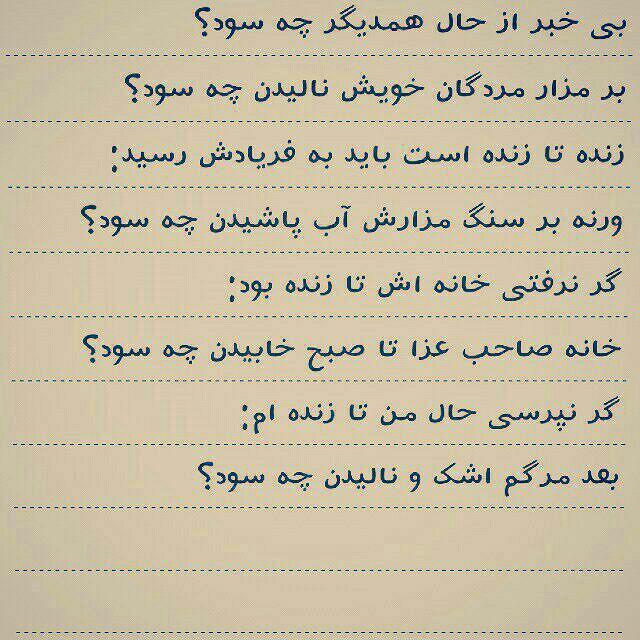 بی خبر از حال همدیگر چه سود؟
بر مزار مردگان خویش نالیدن چه سود؟
زنده تا زنده است باید به فریادش رسید؛
ورنه بر سنگ مزارش آب پاشیدن چه سود؟
گر نرفتی خانه اش تا زنده بود؛
خانه صاحب عزا تا صبح خابیدن چه سود؟
گر نپرسی حال من تا زنده ام؛
بعد مرگم اشک و نالیدن چه سود؟